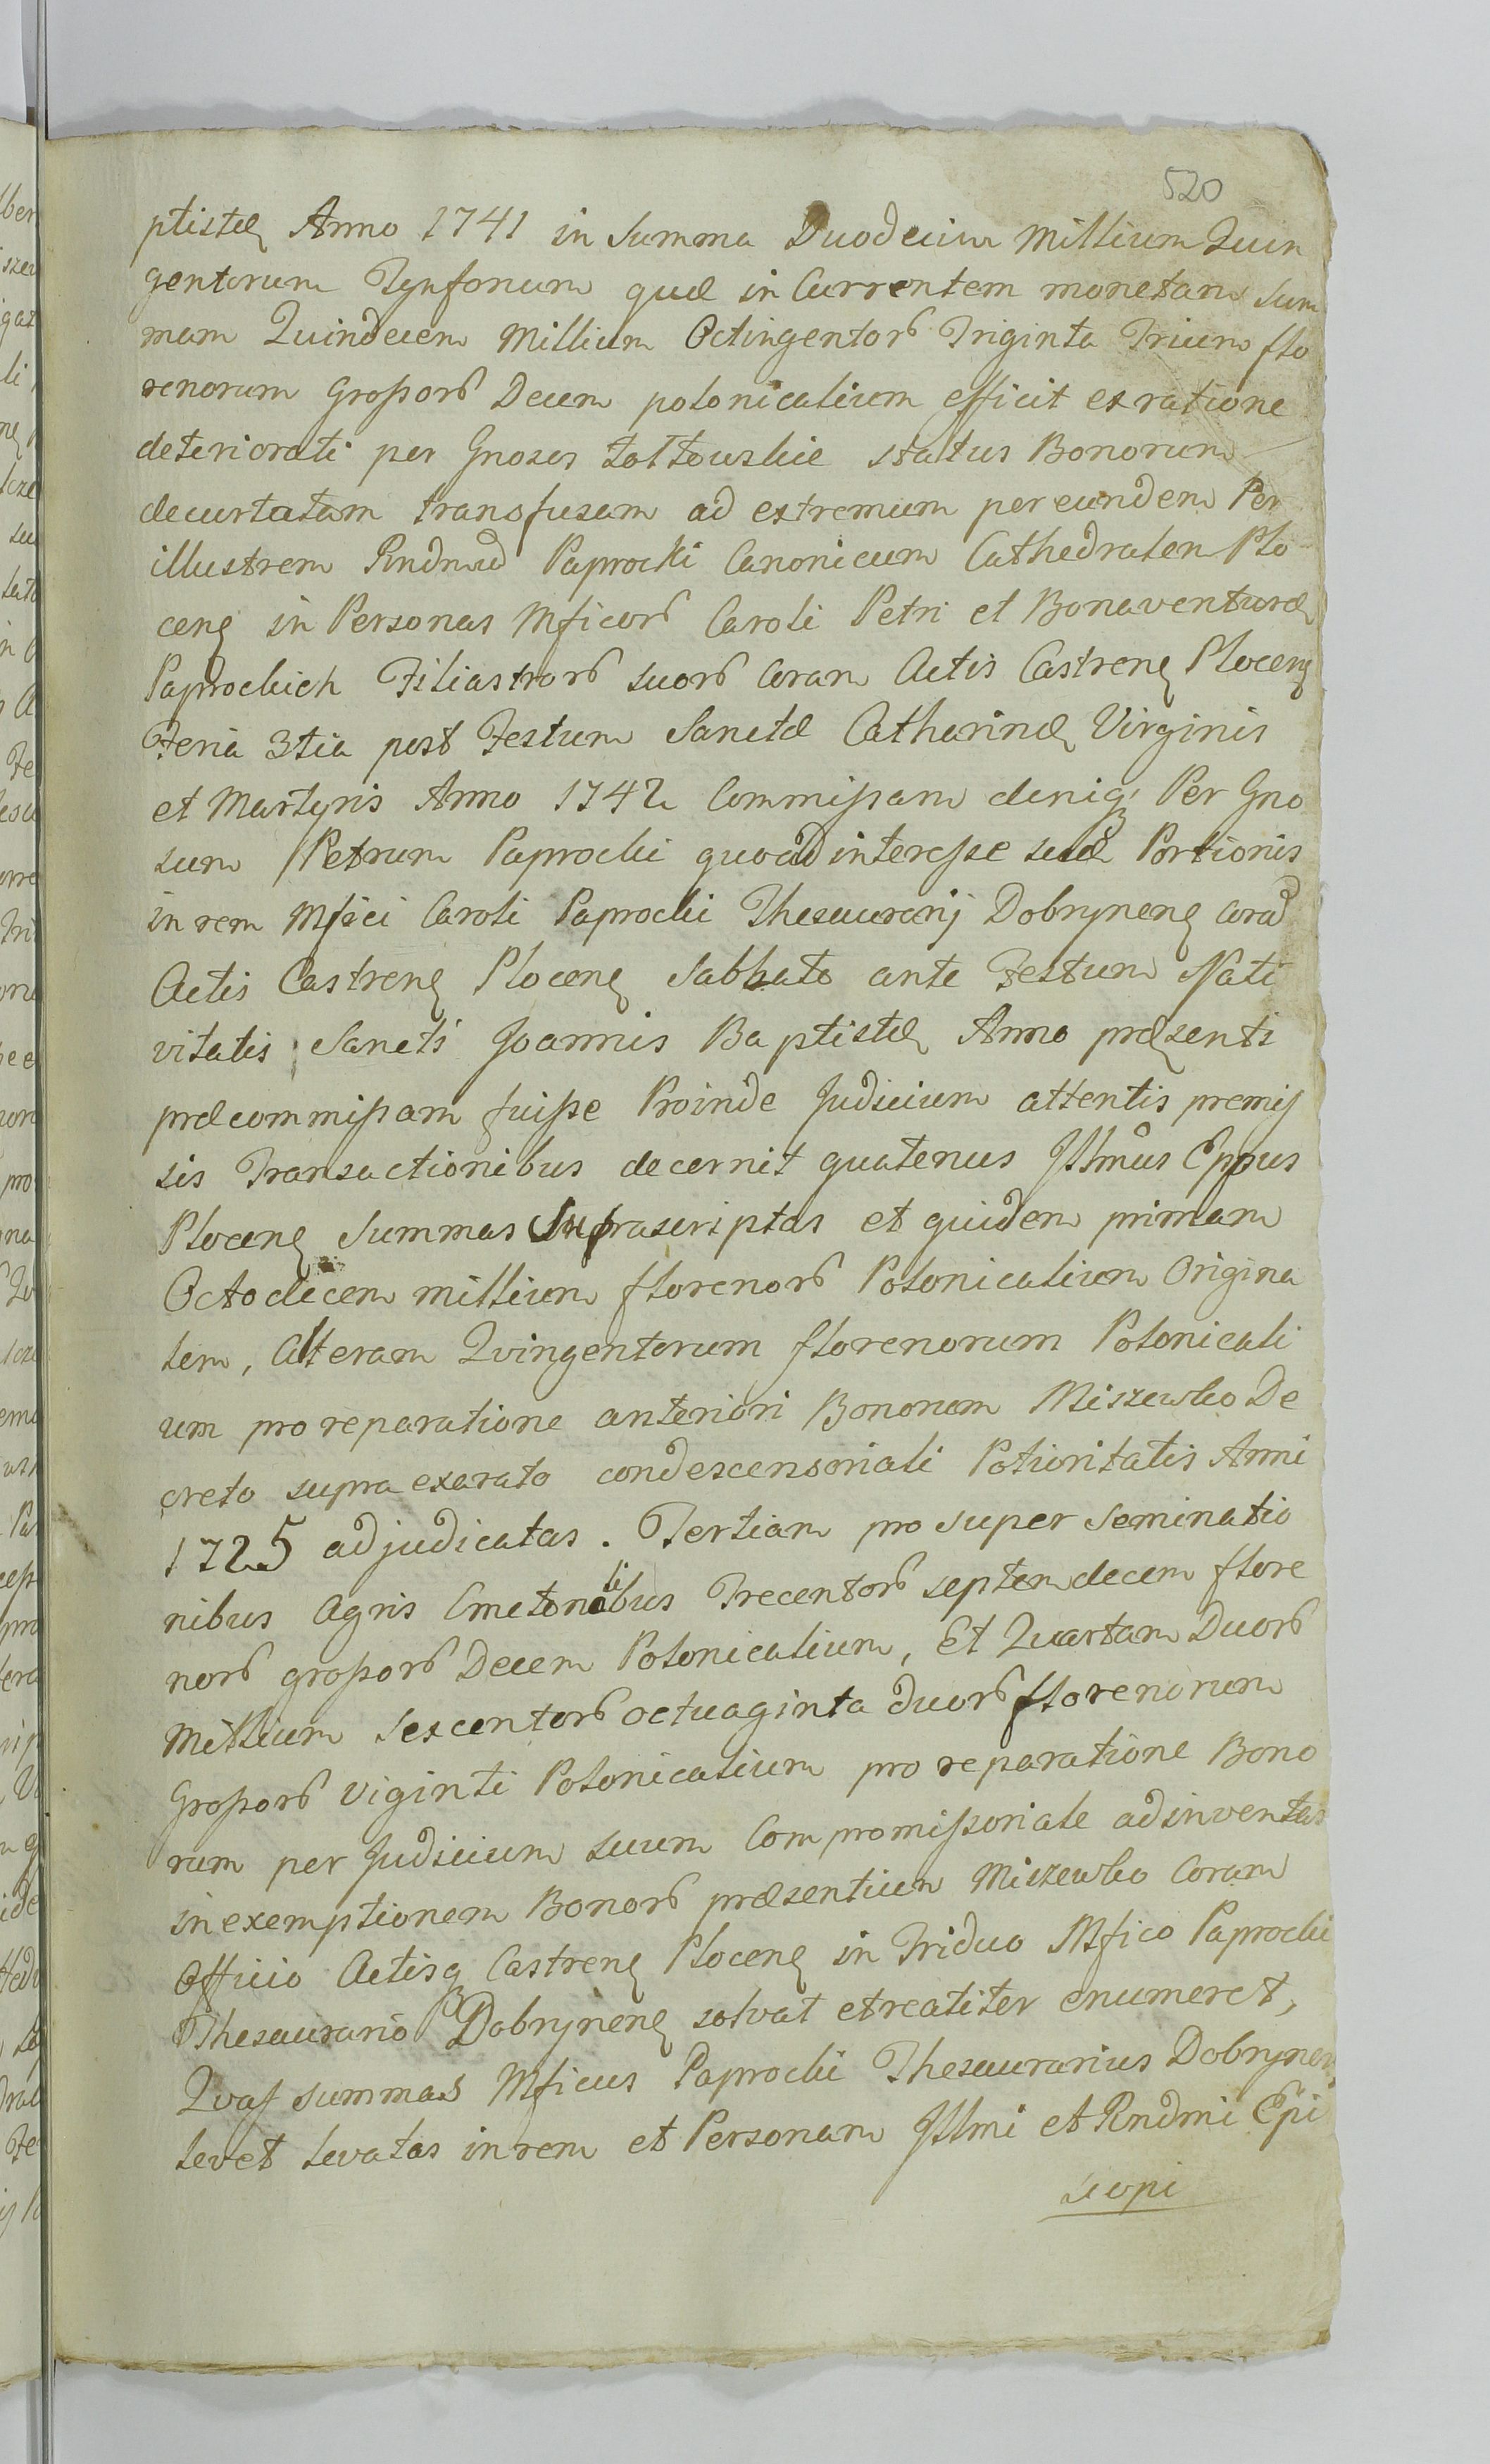 520
ptistæ Anno 1741 in Summa Duodecim Millium Quin
gentorum Tynfonum quæ in Currentem monetam Sum
mam Quindecem Millium Octingentorb Triginta Trium flo
renorum Grossorb Decem polonicalium efficit ex ratione
deteriorati per Gnosos Łołłowskie status Bonorum
decurtatam transfusam ad extremum per eundem Per
illustrem Rndmū Paprocki Canonicum Cathedralem Plo
cen in Personas Mficorb Caroli Petri et Bonaventuræ
Paprockich Filiastrorb suorb Coram Actis Castren Plocen
Feria 3tia post Festum Sanctæ Catharinæ Virginis
et Martyris Anno 1742 Commissam deniq Per Gno
sum Petrum Paprocki quoad interesse suæ Portionis
in rem Mfici Caroli Paprocki Thesaurarij Dobrynen Corā
Actis Castren Plocen Sabbato ante Festum Nati
vitatis Sancti Joannis Baptistæ Anno præsenti
præcommissam fuisse Proinde Judicium attentis premis
sis Transactionibus decernit quatenus Jllmus Eppus
Plocen Summas Suprascriptas et quidem primam
Octodecem millium florenorb Polonicalium Origina
lem, Alteram Quingentorum florenorum Polonicali
um pro reparatione anteriori Bonorum Miszewko De
creto supra exarato condescensoriali Potioritatis Anni
1725 adjudicatas. Tertiam pro super seminatio
nibus Agris Cmetonalibus Trecentorb septemdecem flore
norb grossorb Decem Polonicalium, Et Quartam Duorb
Millium sexcentorb octuaginta duorb florenorum
Grossorb Viginti Polonicalium pro reparatione Bono
rum per Judicium suum Compromissoriale adinventas
in exemptionem Bonorb præsentium Miszewko Coram
Officio Actisq Castren Plocen in Triduo Mfico Paprocki
Thesaurario Dobrynen solvat et realiter enumeret,
Quas summas Mficus Paprocki Thesaurarius Dobrynen
levet levatas in rem et Personam Jllmi et Rndmi Epi
scopi